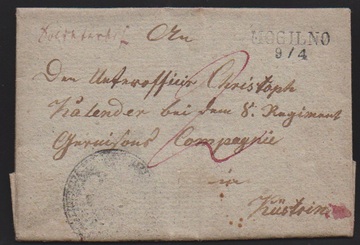 An
MOGILNO
9/4
Den Unterofficir Christoph
Kalender bei dem 8. Regiment
Garnisons Compagnie
in
Küstrin